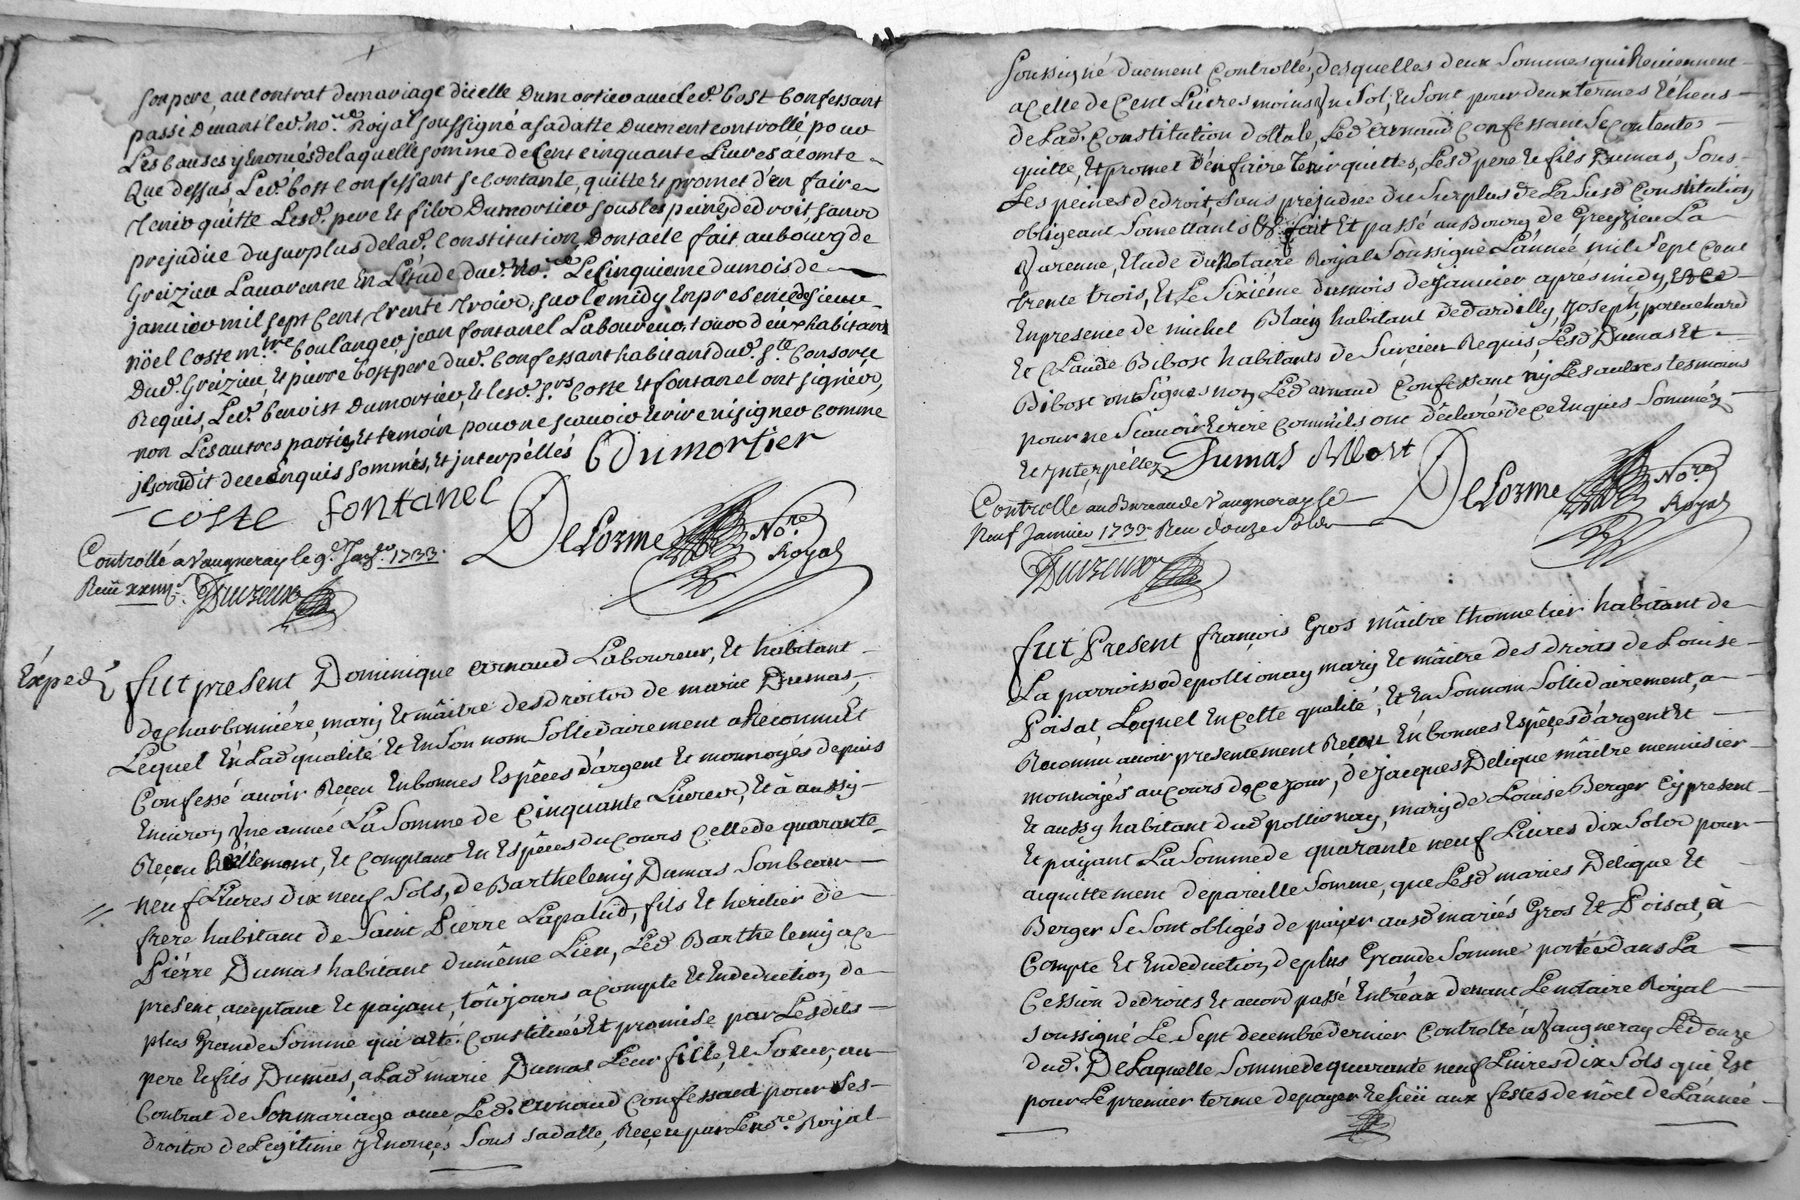 son pere, au contrat de mariage d'icelle Dumortier avec led. bost Confessant
passé devant led. no.re Royal soussigné a sa datte duement controllé pour
Les causes y Enoncés de laquelle somme de Cent cinquante Livres a comte
Que dessus, Led. bost confessant se contante, quitte et promet d'en faire
tenir quitte Lesd. pere et fils Dumortier sous les peines de droit, sans
prejudice du surplus de lad. Constitution, Dont acte fait au bourg de
Greizieu Lavarenne En L'étude dud. no.re Le Cinquieme du mois de
janvier mil sept Cent trente trois, sur le midy En presence de sieur
nöel Coste m.tre boulanger, jean fontanel Laboureur, tous deux habitans
Dud. Greizieu, et pierre bost pere dud. Confessant habitant dud. S.te Consorce
Requis, Led. benoist Dumortier, et lesd. s.rs Coste et fontanel ont signé,
non Les autres parties et temoin pour ne scavoir Ecrire ni signer comme
ils ont dit de ce Enquis sommés, et interpéllés
BDumortier
Coste fontanel
DeLorme No.re Royal
Controllé a Vaugneray le 9.e Jan.er 1733.
Reçu xxiiij s.
Expedé
fut present Dominique Arnaud Laboureur, Et habitant
de charbonniére, mary Et mâitre des droits de marie Dumas,
Lequel En Lad qualité Et En Son nom Sollidairement a Reconnu Et
Confessé avoir Reçeu En bonnes Espêces d'argent Et monnoyés depuis
Environ Une année La Somme de Cinquante Livres, Et à aussy
Reçeu Réellement, Et Comptant En Espêces du Cours Celle de quarante
neuf Livres dix neuf Sols, de Barthelemy Dumas Son beau
frere habitant de Saint Pierre Lapalud, fils Et heritier de
Piérre Dumas habitant du même Lieu, Led Barthelemy a ce
present, acceptant Et payant, toûjours a compte Et En deduction de
plus Grande Somme qui a été Constituée Et promise par Lesdits
pere Et fils Dumas, a Lad marie Dumas Leur fille, Et Soeur, au
Contrat de Son mariage avec Led. Arnaud Confessant pour Ses
droits de Legitime y Enoncés Sous sa datte, Reçeu par Le no.re Royal
soussigné duement Controllé, desquelles deux Sommes qui Reviennent
a celle de Cent Livres moins Un Sol, Et Sont pour deux termes Echeus
de Lad. Constitution dottale, Led Arnaud Confessant Se contente
quitte, Et promet d'en faire tenir quittes, Lesd pere Et fils Dumas, Sous
Les peines de droit, Sans prejudice du Surplus de La Susd Constitution
obligeant Somettant &a fait Et passé au Bourg de Greyzieu La
Varenne, Etude du Notaire Royal Soussigné L'année mil Sept Cent
trente trois, Et Le Sixiéme du mois de Janvier aprés midy,
En presence de michel Blain habitant de Dardilly, Joseph
Et Claude Bibost habitants de Surcieu Requis, Lesd Dumas Et
Bibost ont Signes non Led arnaud Confessant ny Les autres tesmoins
pour ne Scavoir Ecrire Comm'ils ont déclarés de çe Enquis Sommés
Et Interpéllez
Dumas Bibost
DeLorme No.re Royal
Controllé au Bureau de Vaugneray le
Neuf Janvier 1733 Reçu douze Sols
fut Present françois Gros mâitre thonnelier habitant de
La parroisse de pollionay mary Et mâitre des droits de Louise
Poisat, Lequel En cette qualité, Et En Son nom Sollidairement, a
Reconnu avoir presentement Reçeu En bonnes Espêces d'argent Et
monnoyés au cours de çe jour, de Jacques Delique mâitre menuisier
Et aussy habitant dud pollionay, mary de Louise Berger Cy present
Et payant La Somme de quarante neuf Livres dix Sols pour
acquittement de pareille Somme, que Lesd mariés Delique Et
Berger Se Sont obligés de payer ausd mariés Gros Et Poisat, à
Compte Et En deduction de plus Grande Somme portée dans La
Cession de droits Et accord passé Entr'eux devant Le notaire Royal
soussigné Le Sept decembre dernier Controllé à Vaugneray Le douze
dud. De Laquelle Somme de quarante neuf Livres dix Sols qui Est
pour Le premier terme de payer Echeü aux festes de nôel de L'année